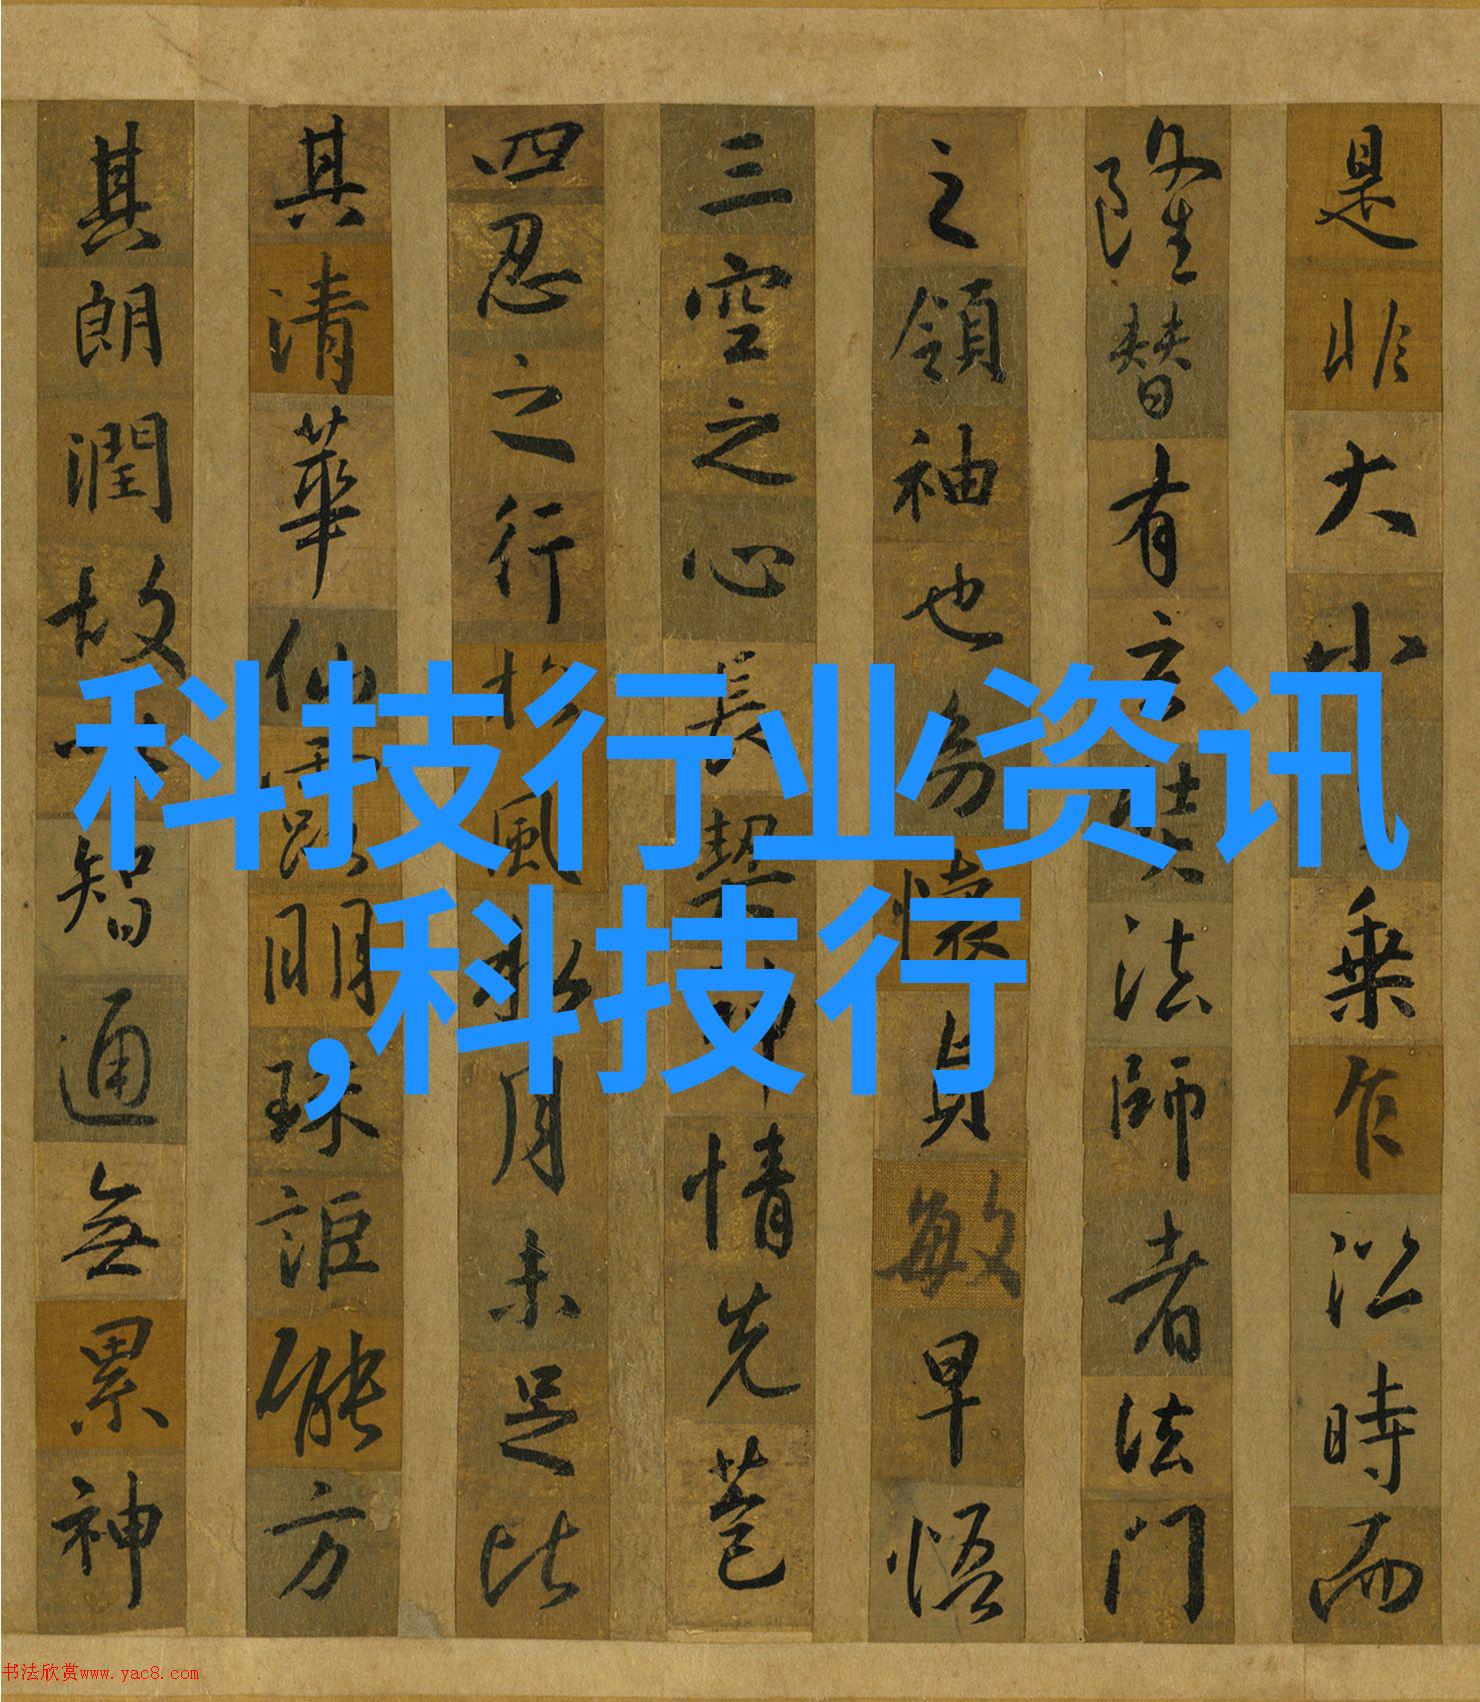 是非大小乘乍沿時而
隆替有玄奘法師者法門
之領袖也幼懷貞敏早悟
三空之心長契神情先苞
四忍之行松風水月未足比
其清華仙露明珠詎能方
其朗潤故以智通無累神
科技行业资讯
,科技行
书法欣赏www.yac8.com